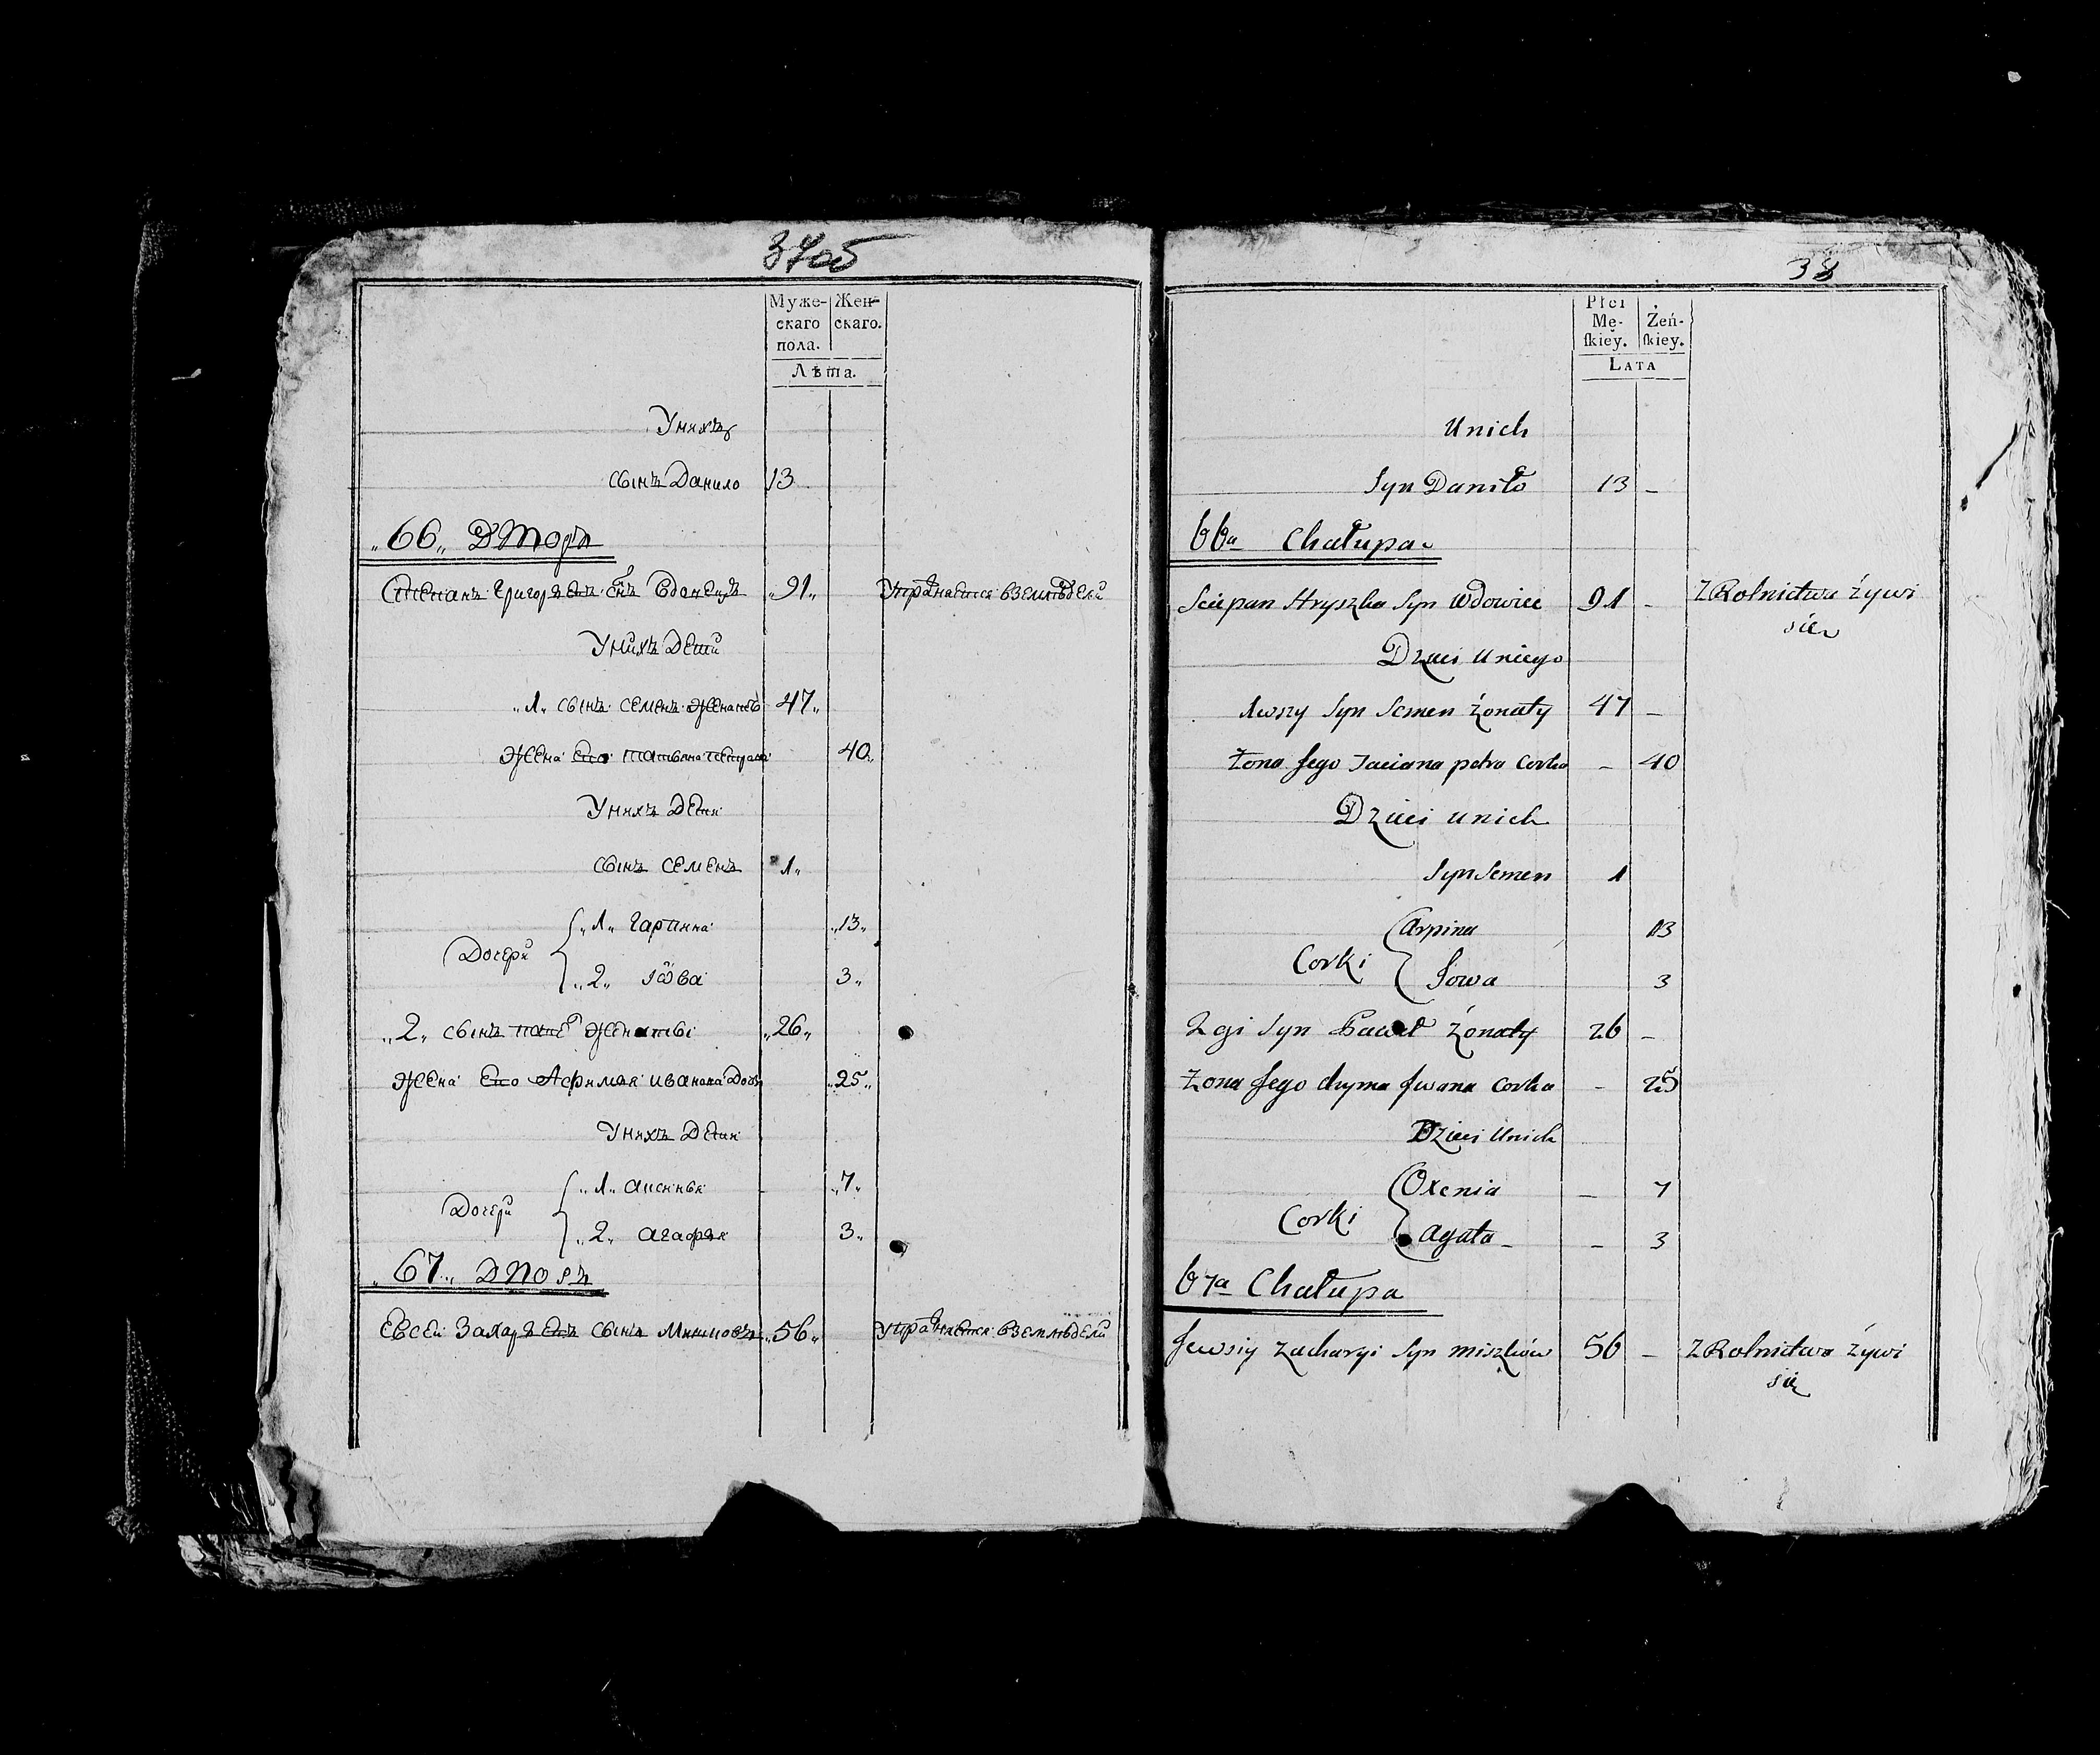 37об
Муже-
скаго
пола.
Жен-
скаго.
Лѣта.
Унихъ
сынъ Данило 13
„66„ Дворъ
Степанъ Григоръевъ снъ Вдовецъ „91„
Унихъ Дети
„1„ сынъ семенъ женатъ 47„
жена его татьяна 40„
Унихъ Дети
сынъ семенъ 1„
Дочери
„1„ гарпина „13„
„2„ Іова 3„
„2„ сынъ женатъ „26„
жена его ивана Дочь „25„
Унихъ Дети
Дочери
„1„ „7„
„2„ 3„
„67„ Дворъ
Евсей Захаръ сынъ „56„
38
Płci
Mę-
ſkiey.
Żeń-
ſkiey.
Lata
Unich
Syn Daniło 13 –
66a Chałupa
Sciepan Hryszka Syn Wdowiec 91 – Z Rolnictwa żywi
się
Dzieci Uniego
1wszy Syn Semen Żonaty 47 –
Żona Jego Taciana petra Corka – 40
Dzieci unich
Syn Semen 1
Corki
Arpina 13
Jowa 3
2gi Syn Paweł Żonaty 26 –
Żona Jego Jwana Corka – 25
Dzieci Unich
Corki
Oxenia – 7
Agata – – 3
67a Chałupa
Jewsiy Zacharyi Syn miszków 56 – Z Rolnictwa żywi
się